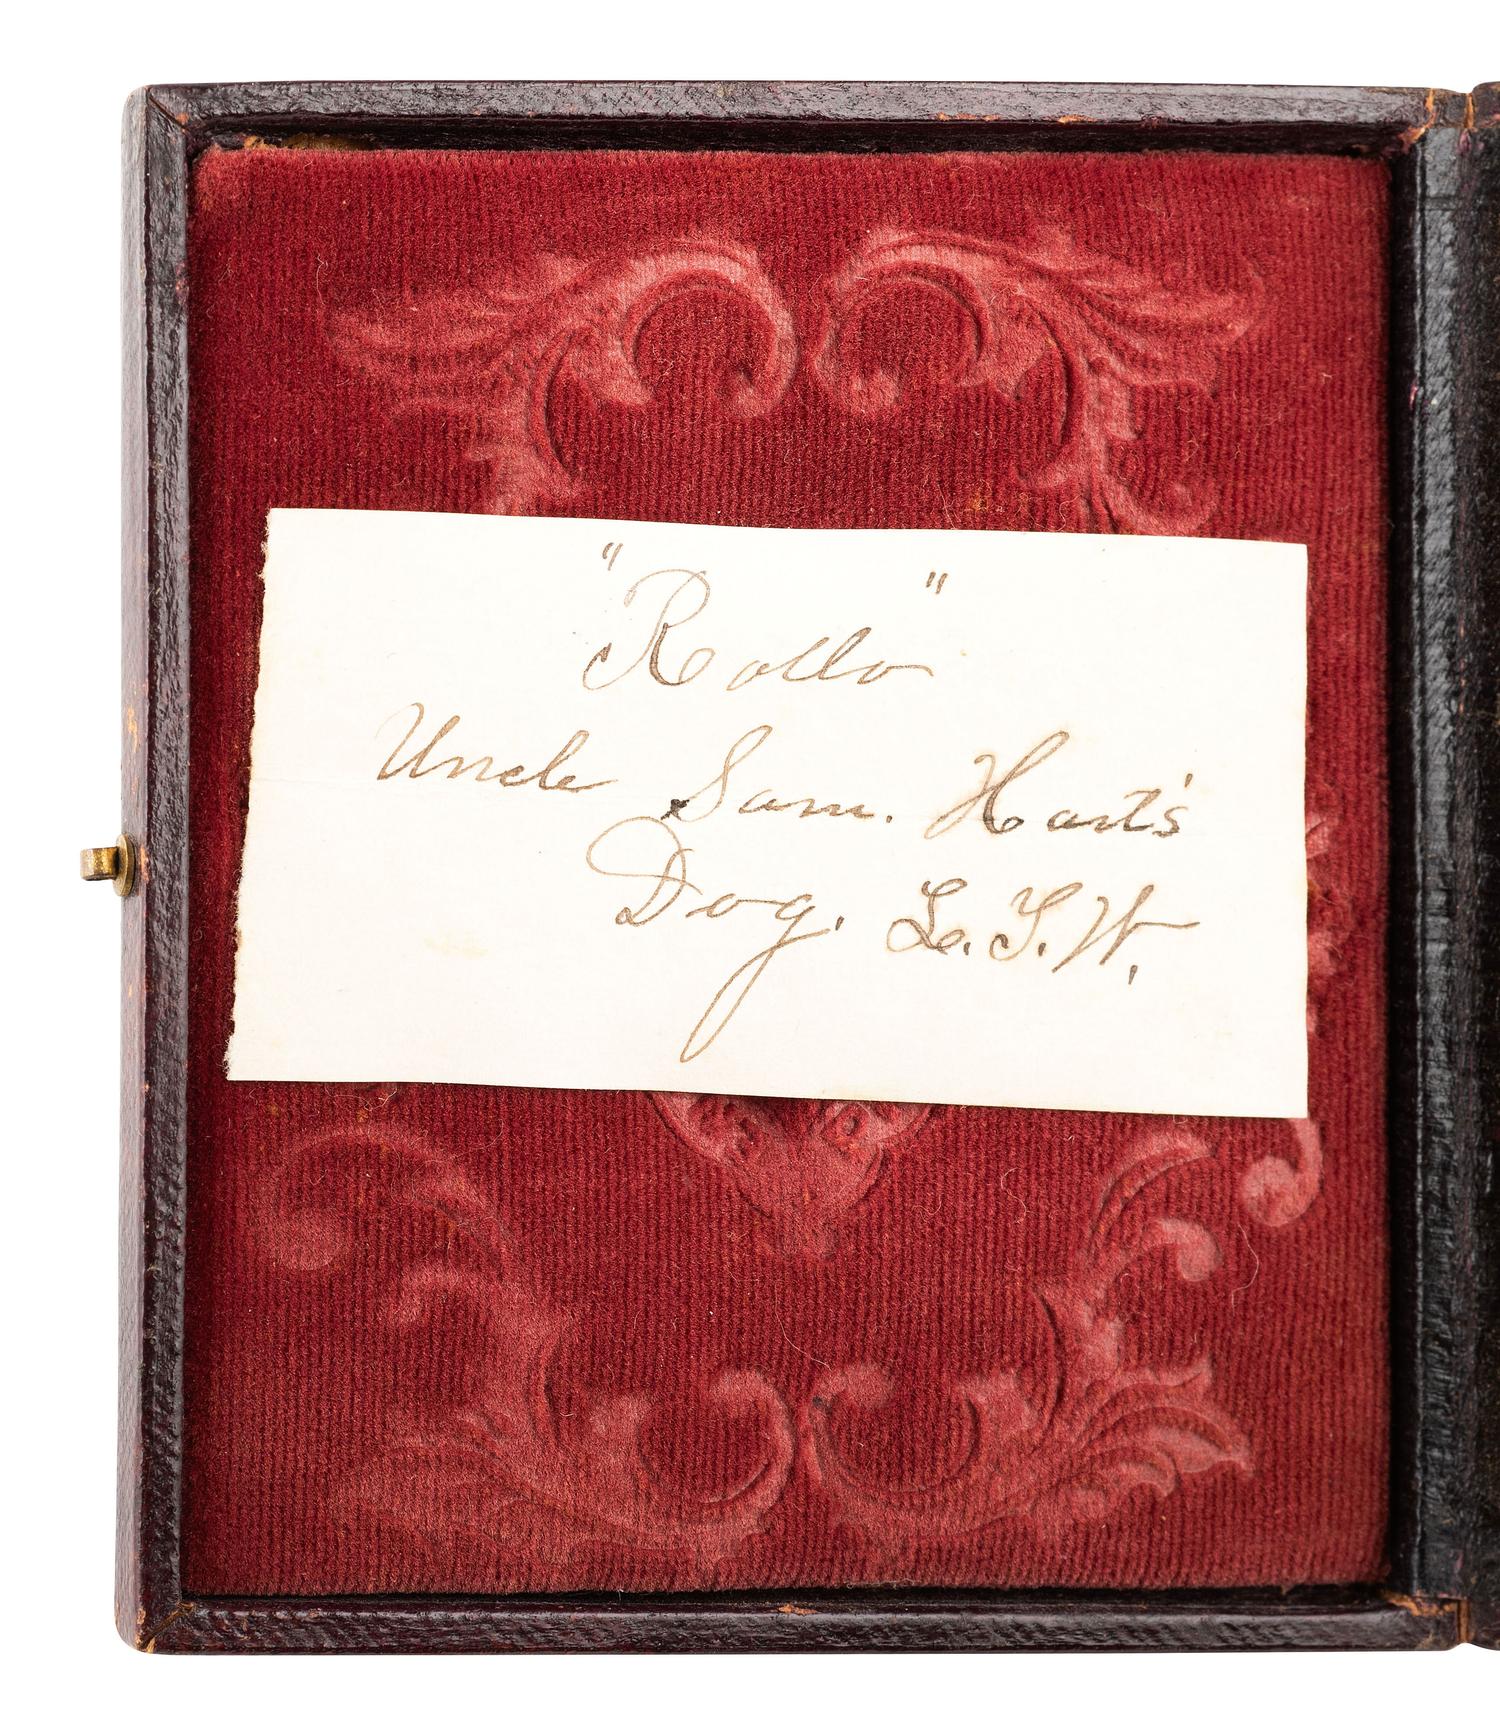 "Rollo"
Uncle Sam. Hart's
Dog. L.S.W.